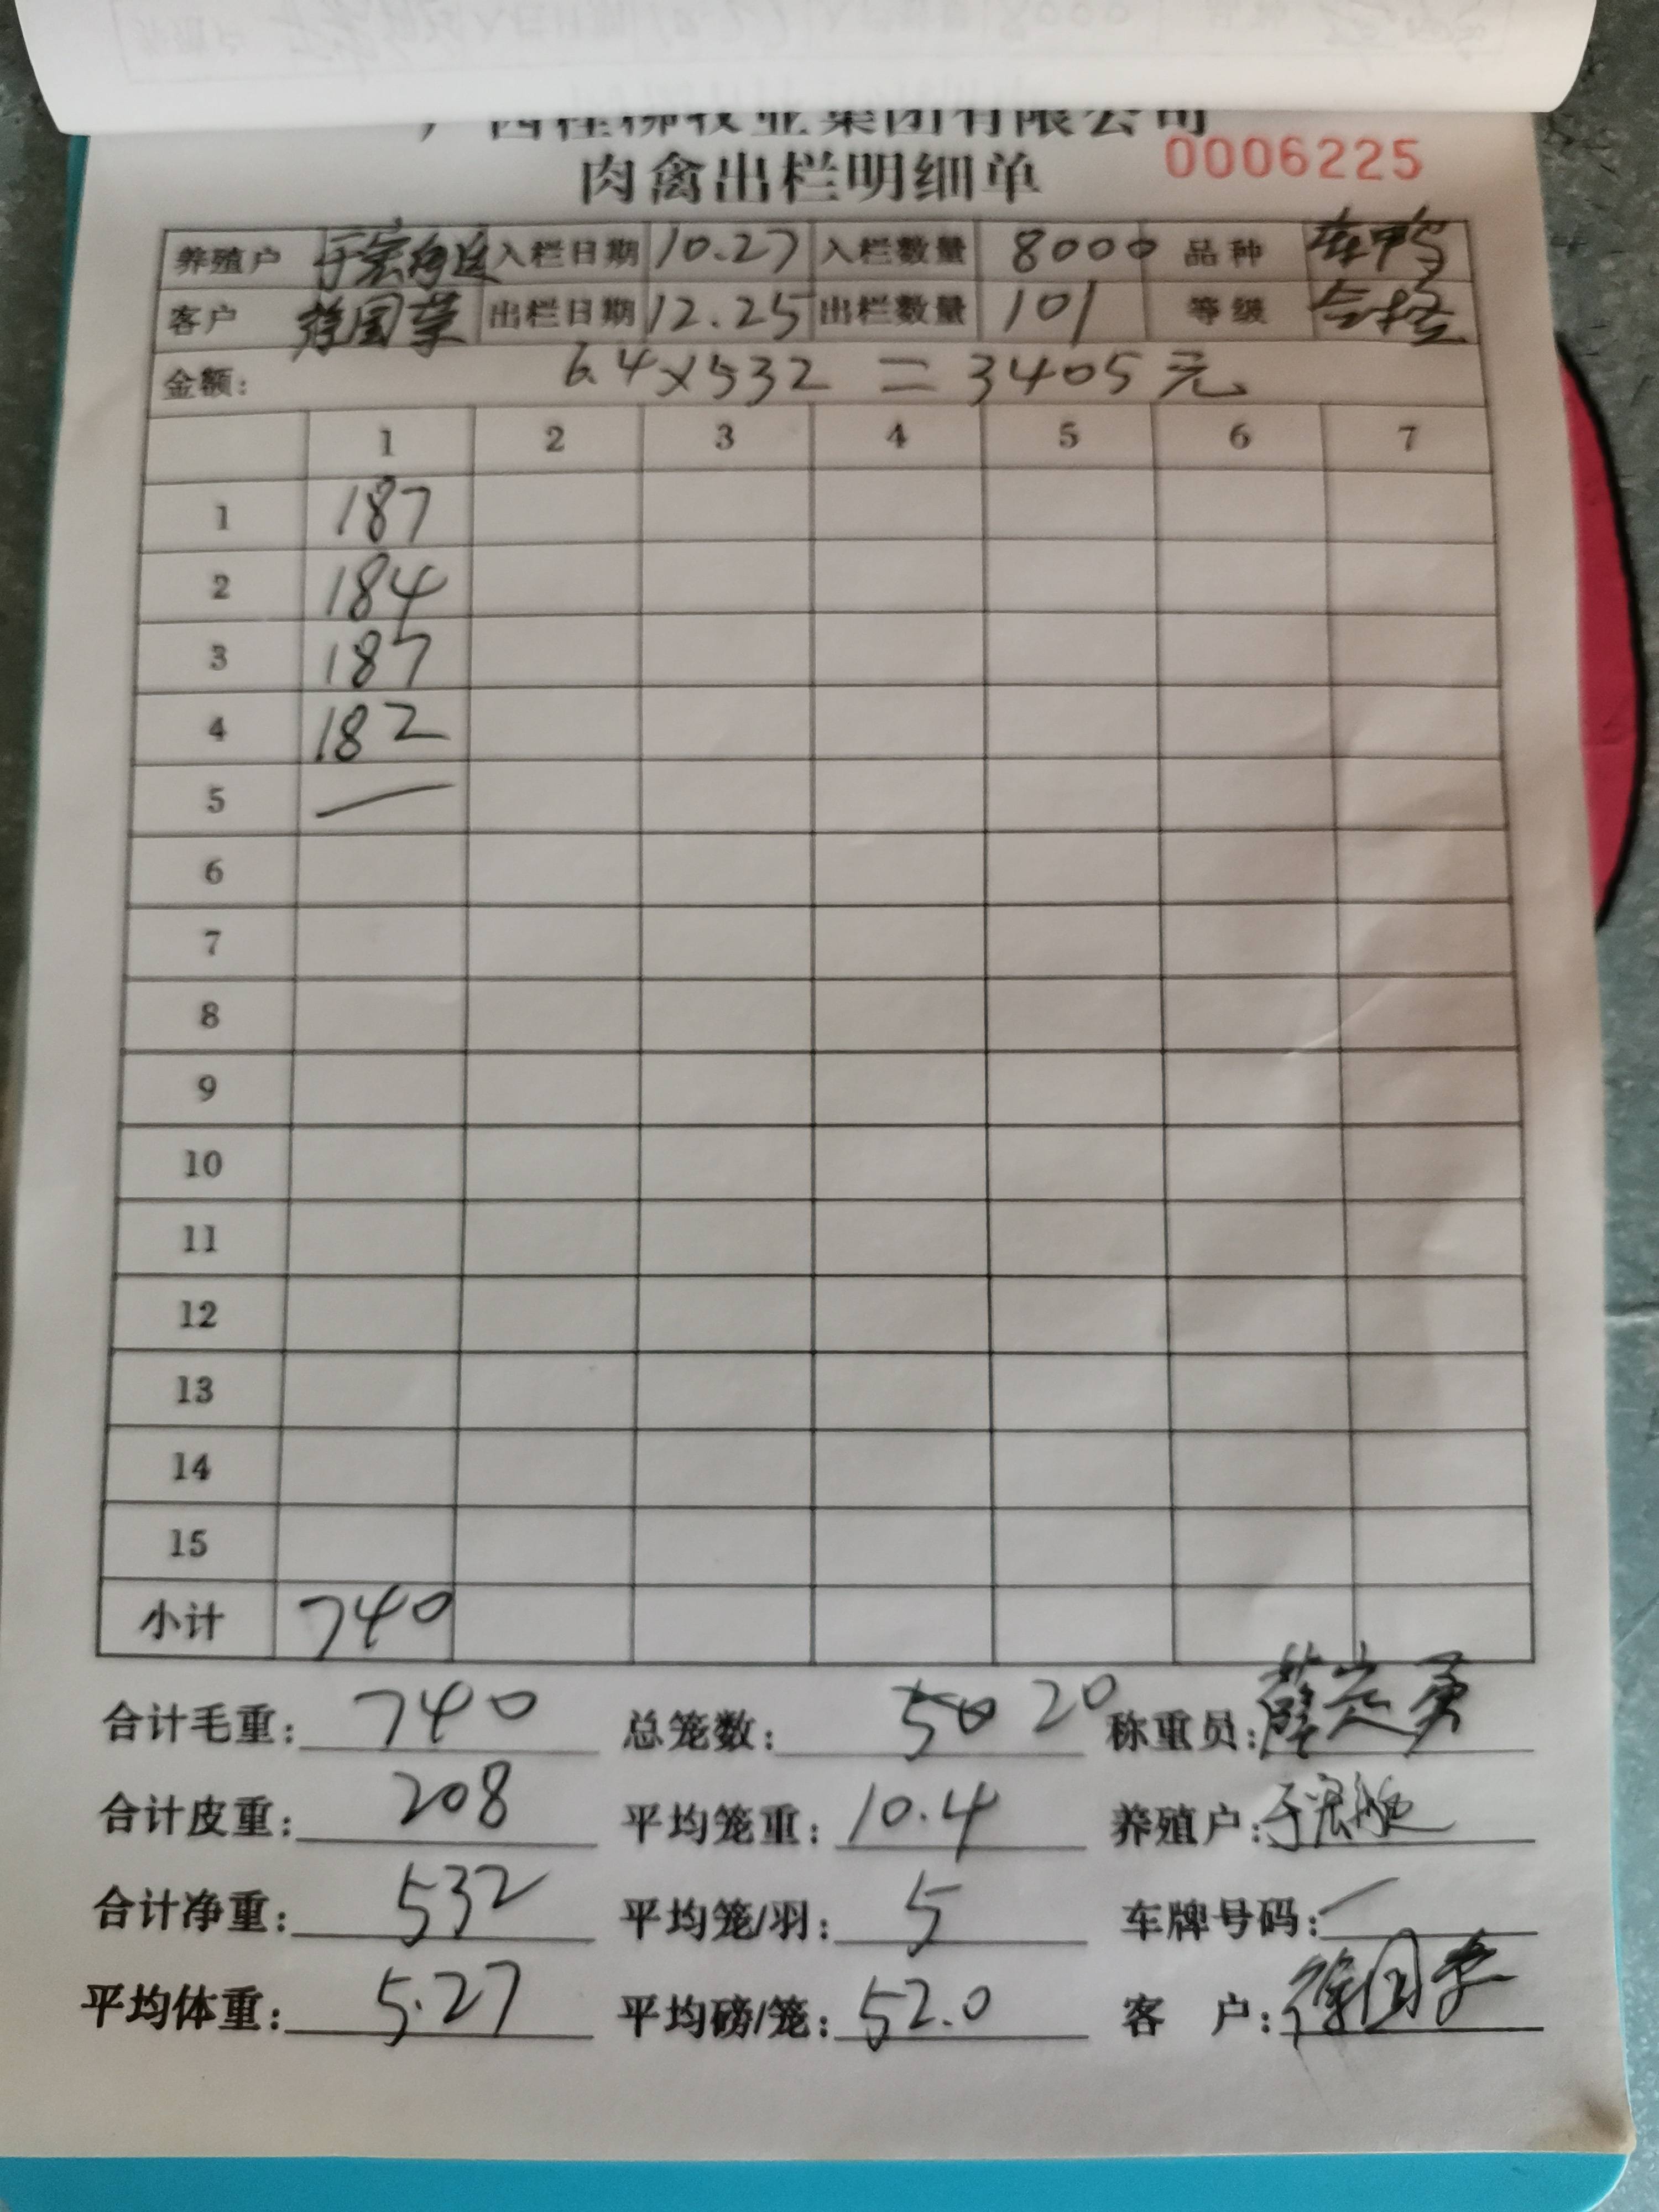 广西桂柳牧业集团有限公司
肉禽出栏明细单 0006225
养殖户 入栏日期 10.27 入栏数量 8000 品种
客户 出栏日期 12.25 出栏数量 101 等级
金额: 6.4×532=3405元
1 2 3 4 5 6 7
1 187
2 184
3 187
4 182
5 —
6
7
8
9
10
11
12
13
14
15
小计 740
合计毛重: 740 总笼数: 20 称重员:
合计皮重: 208 平均笼重: 10.4 养殖户:
合计净重: 532 平均笼/羽: 5 车牌号码: —
平均体重: 5.27 平均磅/笼: 52.0 客 户: